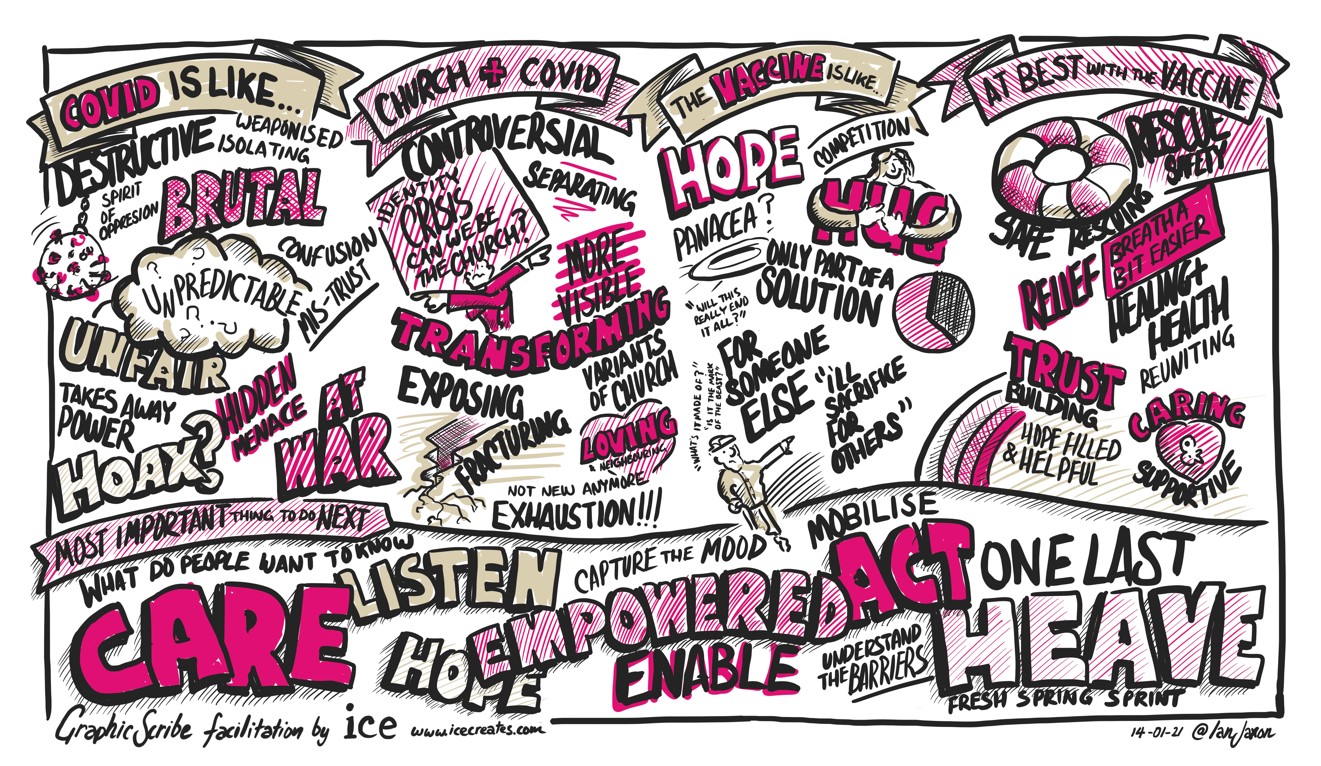 COVID IS LIKE...
DESTRUCTIVE
WEAPONISED
ISOLATING
SPIRIT
OF
OPPRESION
BRUTAL
UNPREDICTABLE
CONFUSION
MIS-TRUST
UNFAIR
TAKES AWAY
POWER
HIDDEN
MENACE
AT
WAR
HOAX?
CHURCH + COVID
CONTROVERSIAL
IDENTITY
CRISIS
CAN WE BE
THE CHURCH?
SEPARATING
MORE
VISIBLE
TRANSFORMING
EXPOSING
VARIANTS
OF CHURCH
FRACTURING
LOVING
& NEIGHBOURING
NOT NEW ANYMORE
EXHAUSTION!!!
THE VACCINE IS LIKE..
HOPE
COMPETITION
HUG
PANACEA?
ONLY PART OF A
SOLUTION
"WILL THIS
REALLY END
IT ALL?"
FOR
SOMEONE
ELSE
"WHAT'S IT MADE OF?"
"IS IT THE MARK
OF THE BEAST?"
"I'LL
SACRIFICE
FOR
OTHERS"
AT BEST WITH THE VACCINE
RESCUE
SAFETY
SAFE
RESCUING
BREATH A
BIT EASIER
RELIEF
HEALING +
HEALTH
REUNITING
TRUST
BUILDING
HOPE FILLED
& HELPFUL
CARING
&
SUPPORTIVE
MOST IMPORTANT THING TO DO NEXT
WHAT DO PEOPLE WANT TO KNOW
CARE
LISTEN
HOPE
CAPTURE THE MOOD
EMPOWERED
ENABLE
MOBILISE
ACT
UNDERSTAND
THE BARRIERS
ONE LAST
HEAVE
FRESH SPRING SPRINT
Graphic Scribe facilitation by ice www.icecreates.com
14-01-21 @IanJaxon